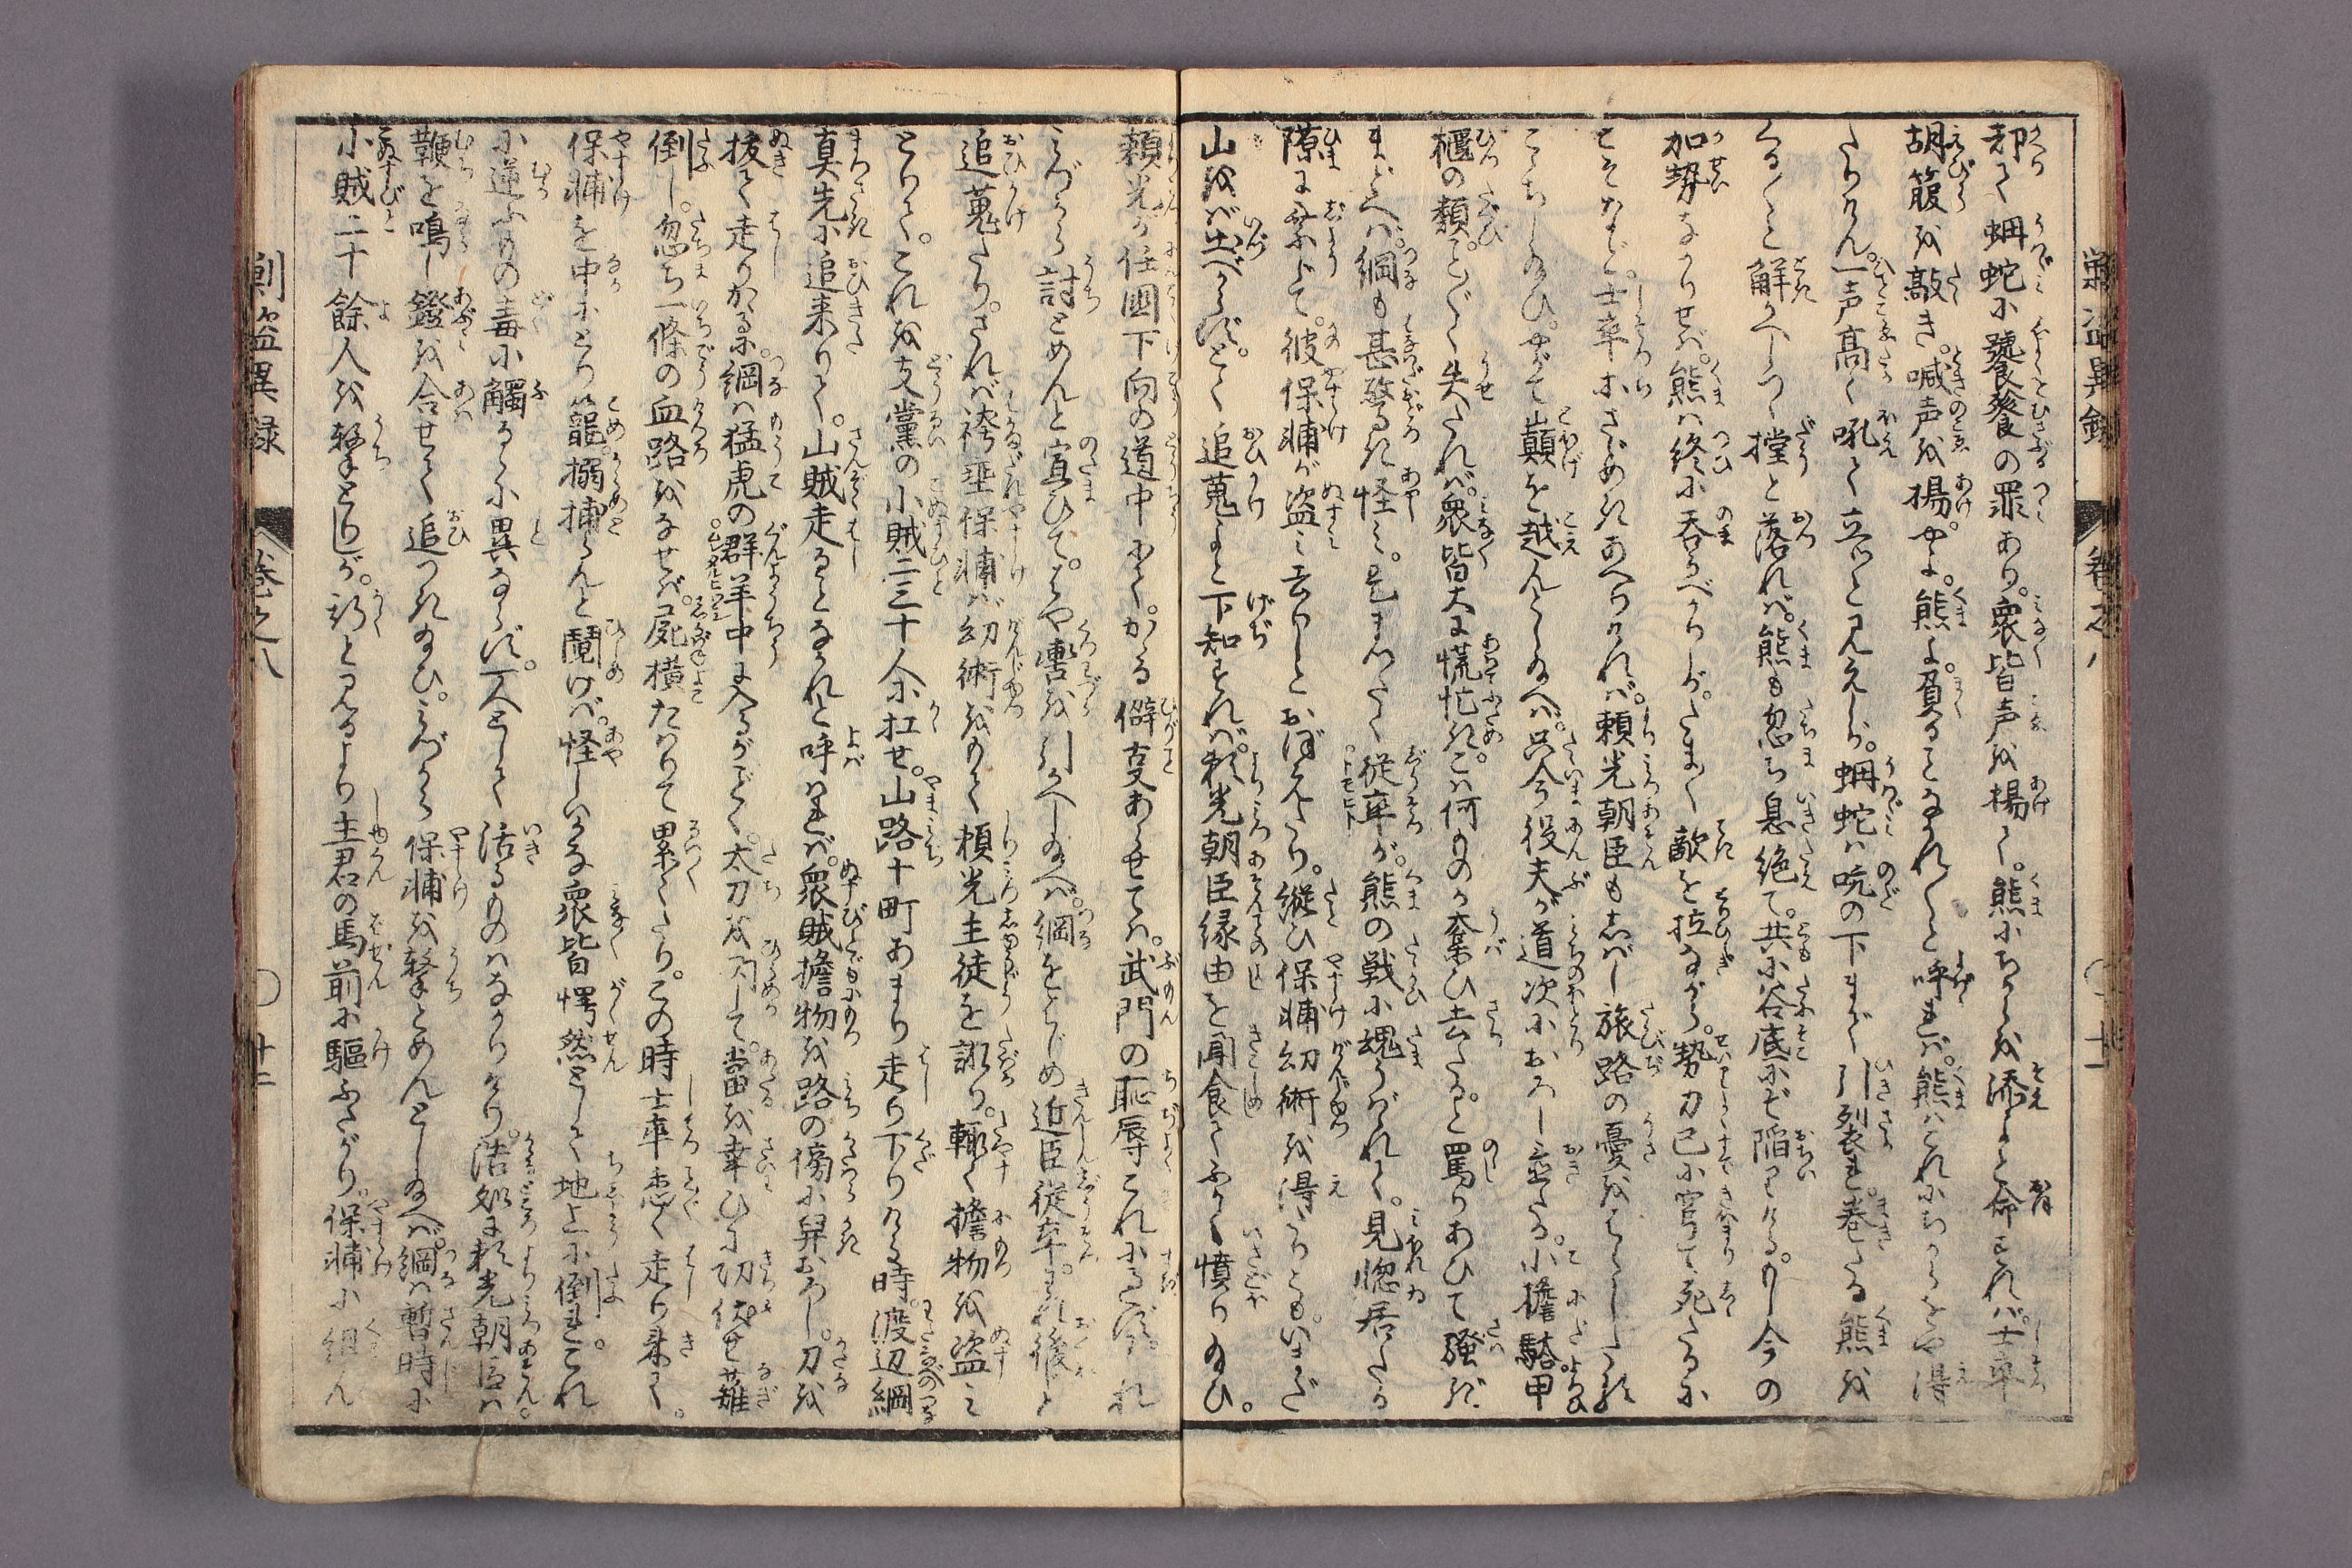 却て蝄蛇に饕餮の罪あり。衆皆声を揚て。熊にちからを添よと命ければ。士卒
胡簶を敲き。喊声を揚。やよ。熊よ。負ることなかれ〳〵と呼れば。熊はこれにちからをや得
たりけん。一声高く吼て立つと見えしが。蝄蛇は吭の下まで引裂れ。巻たる熊を
くる〳〵と解かへしつゝ。撐と落れば。熊も忽ち息絶て。共に谷底にぞ陥りける。もし今の
加勢なかりせば。熊は終に呑るべかりしが。たま〳〵敵を拉ながら。勢力已に窮て死たるに
こそなど。士卒ホさゞめきあへりければ。頼光朝臣もしばし旅路の憂をはらしたまひ
こゝちし給ひ。やがて巓を越んとし給へば。只今役夫が道次におろし置たる。小擔駱甲
櫃の類。こと〴〵く失たれば。衆皆大に慌忙き。こは何ものか奪ひ去たると罵りあひて騒げば
まどへば。綱も甚驚き怪み。是まつたく従卒が。熊の戦に魂うばゝれて。見惚居たる
隙に乗じて。彼保輔が盗み去りしとおぼえたり。縦ひ保輔幻術を得たりとも。いまだ
山をば出べからず。とく追蒐よと下知すれば。頼光朝臣縁由を聞食てふかく憤り給ひ。
頼光が任国下向の道中にて。かゝる僻事あらせては。武門の恥辱これにすぎず。われ
みづから討とめんと宣ひて。はや轡を引かへし給へば。綱をはじめ近臣従卒。われ後じと
追蒐たり。されば袴垂保輔は幻術をもて頼光主徒を誑り。輙く擔物を盗み
とりて。これを支黨の小賊二三十人に扛せ。山路十町あまり走り下りける時。渡辺綱
真先に追来りて。山賊走ることなかれと呼はれば。衆賊擔物を路の傍に舁おろし。刀を
抜て走りかゝるに。綱は猛虎の群羊中に入るがごとく。太刀を閃して。當るを幸ひに切伏せ薙
倒し。忽ち一條の血路をなせば。屍横たはりて累々たり。この時士卒悉く走り来て。
保輔を中にとり籠。搦捕らんと鬩げば。怪しいかな衆皆愕然として地上に倒れ。これ
に逆ふもの毒に觸るゝに異ならず。一人として活るものはなかりけり。浩処に頼光朝臣は
鞭を鳴し鐙を合せて追つき給ひ。みづから保輔を撃とめんとし給へば。綱は暫時に
小賊二十餘人を撃とりしが。斯と見るより主君の馬前に驅ふさがり。保輔に組ん
巻之八
〇十一
剿盗異録
巻之八
〇十二